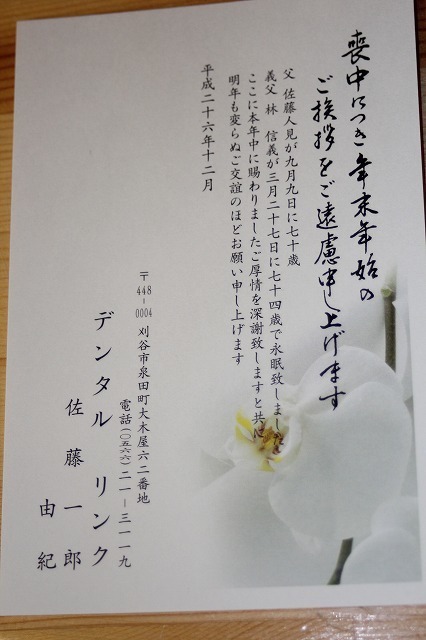 喪中につき年末年始の
ご挨拶をご遠慮申し上げます
父 佐藤人見が九月九日に七十歳
義父 林 信義が三月二十七日に七十四歳で永眠致しました
ここに本年中に賜わりましたご厚情を深謝致しますと共に
明年も変らぬご交誼のほどお願い申し上げます
平成二十六年十二月
〒448-0004 刈谷市泉田町大木屋六二番地
電話(〇五六六)二一-三一一九
デンタル リンク
佐藤一郎
由紀